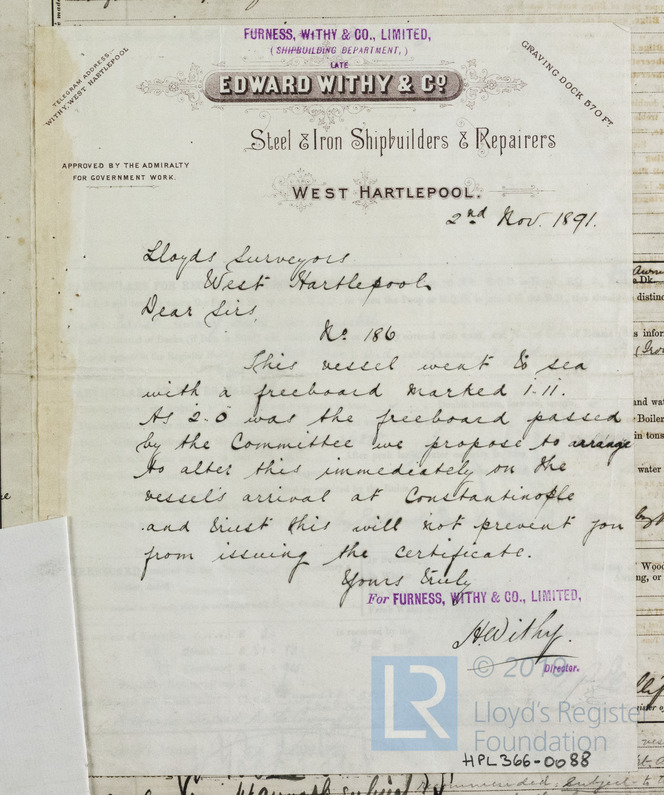 FURNESS, WITHY & CO., LIMITED,
(SHIPBUILDING DEPARTMENT,)
LATE
EDWARD WITHY & Co.
TELEGRAM ADDRESS
WITHY, WEST HARTLEPOOL
GRAVING DOCK 570 FT.
Steel & Iron Shipbuilders & Repairers
APPROVED BY THE ADMIRALTY
FOR GOVERNMENT WORK.
WEST HARTLEPOOL.
2nd Nov. 1891.
Lloyds Surveyors
West Hartlepool
Dear Sirs,
No. 186
This vessel went to sea
with a freeboard marked 1.11.
As 2.0 was the freeboard passed
by the Committee we propose to arrange
to alter this immediately on the
vessel's arrival at Constantinople
and trust this will not prevent you
from issuing the certificate.
Yours truly
For FURNESS, WITHY & CO., LIMITED,
H. Withy.
Director.
LR
Lloyd's Register
Foundation
HPL366-0088
Dk.
distinc
s infor
and wa
Boiler
in tons
water
Wood
ng, or